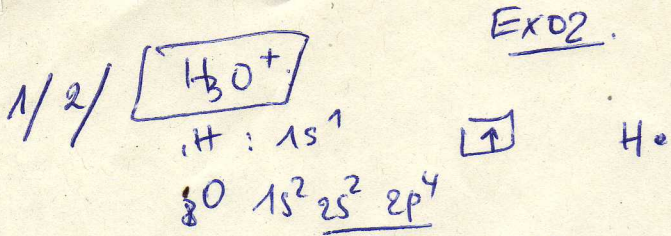 Ex02.
1/ 2/ H3O+
1H : 1s1 ↑ H•
8O 1s2 2s2 2p4